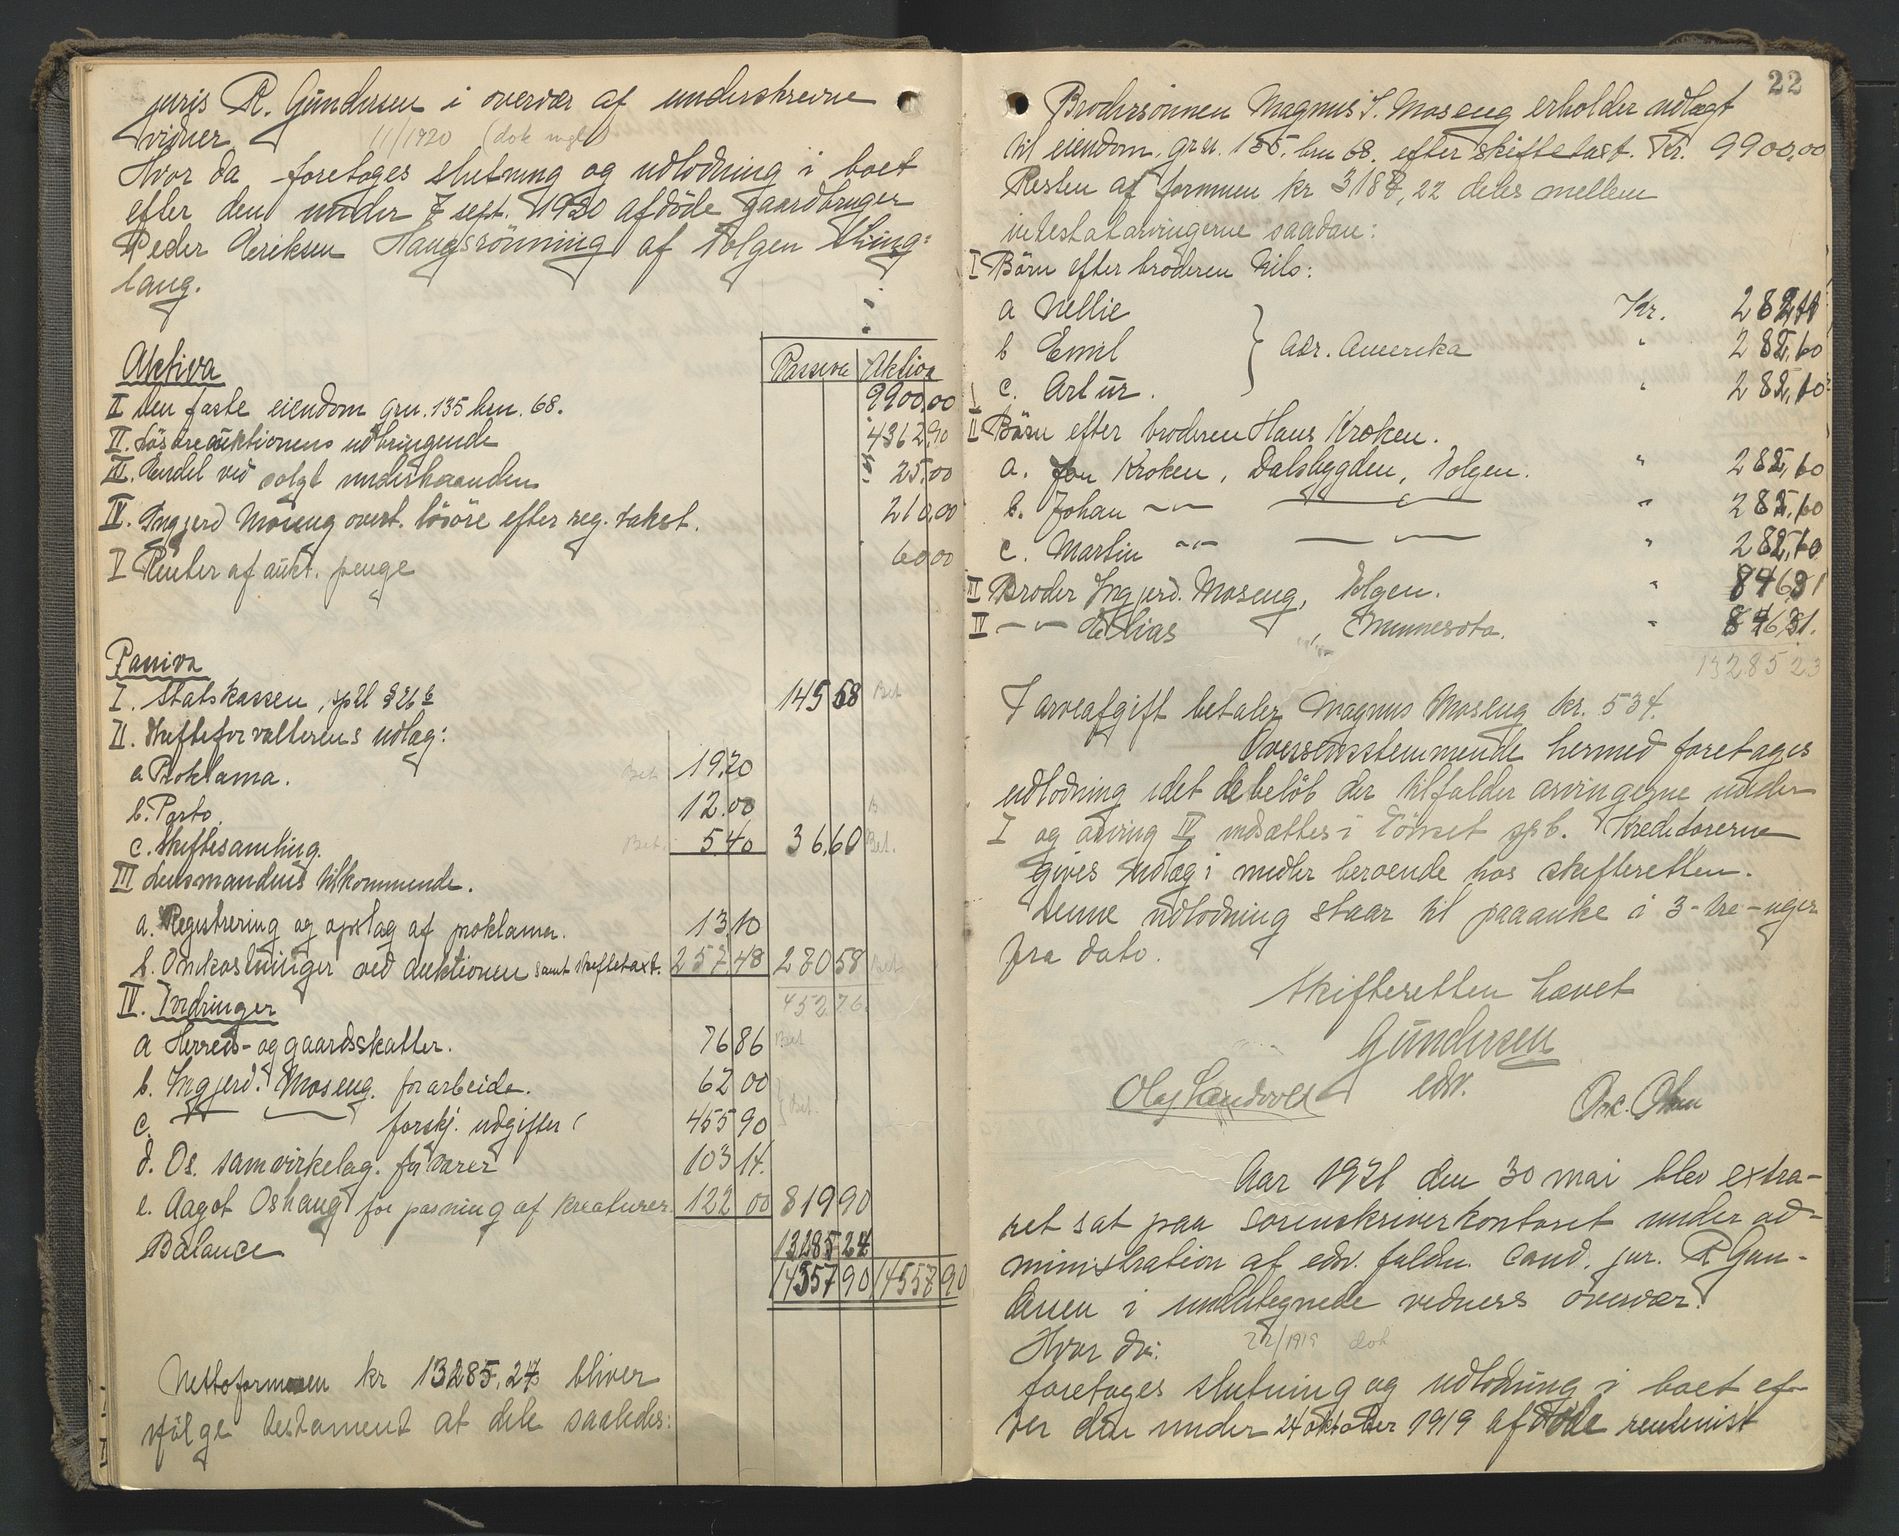 juris R. Gundersen i overvær af underskrevne
vidner
11/1920 (dok
Hvor da foretoges slutning og udlodning i boet
efter den under 7 sept. 1920 afdöde gaardbruger
Peder Eriksen Haugsrönning af Tolgen thing-
lang.
Passiva Aktiva
Aktiva
I Den faste eiendom grn. 135 brn. 68. 9900,00
II. Lösöreauktionens udbringende 4362,90
III. Endel ved solgt underhaanden 25,00
IV. Ingjerd Moseng overt. lösöre efter reg. takst. 210,00
V Renter af aukt. penge 60,00
Passiva
I. Statskassen, spl § 26 145 58 Bet
II. Skifteforvalterens udlæg:
a Proklama. Bet 19,20
b. Porto. 12.00 B
c. Skiftesamling. Bet. 5,40 36,60 Bet.
III Lensmandens tilkommende.
a. Registrering og opslag af proklama. 13,10
b. Omkostninger ved auktionen samt skiftetaxt. 257 48 280 58 Bet
452 76
IV. Fordringer
a Herreds- og gaardsskatter. 76 86 Bet
b. Ingjerd. Moseng. for arbeide. 62 00
c. forskj. udgifter 455 90 Bet.
d. Os. samvirkelag. for varer 103 14.
e. Aagot Oshaug for pasning af kreaturer. 122 00 819 90
Balance 13285 24
14557 90 14557 90
Nettoformuen kr 13285,24 bliver
ifölge testament at dele saaledes:
22
Brodersönnen Magnus S. Moseng erholder udlagt
til eiendom. grn. 135. brn 68. efter skiftetaxt. Kr. 9900,00
Resten af formuen kr 3187,22 deles mellem
intestatarvingerne saadan:
I Börn efter broderen Nils:
a Nellie Kr.
b Emil Adr. Amerika " 282,60
c. Artur. " 282,60
II Börn efter broderen Hans Kroken.
a. Jon Kroken, Dalsbygden, Tolgen. " 282,60
b. Johan -"- " 282,60
c. Martin -"- " 282,60
III Broder Ingjerd. Moseng, Tolgen. "
IV -"- Elias, Minnesota. "
13285 23
I arveafgift betaler Magnus Moseng kr. 534.
Overensstemmende hermed foretages
udlodning idet de belöb der tilfalder arvingerne under
I og arving IV indsættes i Tönset spb. Kreditorerne
gives udlæg i midler beroende hos skifteretten.
Denne udlodning staar til paaanke i 3-tre-uger
fra dato.
Skifteretten hævet
Gundersen
edv.
Olaf Sandvold Osc. Olsen
Aar 1921 den 30 mai blev extra-
ret sat paa sorenskriverkontoret under ad-
ministration af edv. fuldm. cand. jur. R Gun-
dersen i undertegnede vidners overvær.
Hvor da: 22/1919 dok
foretoges slutning og udlodning i boet ef-
ter den under 24 oktober 1919 afdöde rentenist